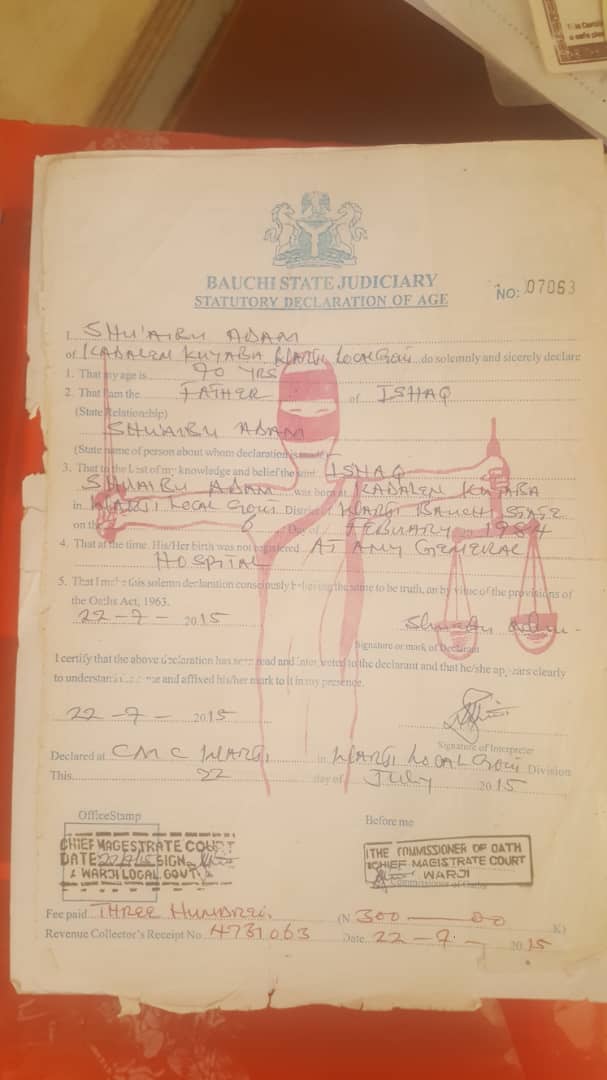 BAUCHI STATE JUDICIARY
STATUTORY DECLARATION OF AGE
NO: 07063
I. SHU'AIBU ADAM
of KADALEN KUYABA WARJI LOCAL GOVT. do solemnly and sicerely declare
1. That my age is 70 YRS
2. That I am the FATHER of ISHAQ
(State Relationship)
SHU'AIBU ADAM
(State name of person about whom declaration is made)
3. That to the best of my knowledge and belief the said ISHAQ
SHUAIBU ADAM was born at KADALEN KUYABA
in WARJI LOCAL GOVT. District of WARJI BAUCHI STATE
on the 6 Day of FEBUARY 1984
4. That at the time. His/Her birth was not registered AT ANY GENERAL
HOSPITAL
5. That I make this solemn declaration consciously believing the same to be truth, an by virtue of the provisions of
the Oaths Act, 1963.
22-7- 2015
Signature or mark of Declarant
I certify that the above declaration has been read and interpreted to the declarant and that he/she appears clearly
to understand the same and affixed his/her mark to it in my presence.
22-7- 2015
Signature of Interpreter
Declared at CMC WARJI in WARJI LOCAL GOVT Division
This 22 day of July 2015
Office Stamp
Before me
CHIEF MAGESTRATE COURT
DATE 22/7/15 SIGN
WARJI LOCAL GOVT
THE COMMISSIONER OF OATH
CHIEF MAGISTRATE COURT
WARJI
Commissioner of Oaths
Fee paid THREE HUNDRED (N 300 00 K)
Revenue Collector's Receipt No 4731063 Date 22-7- 2015